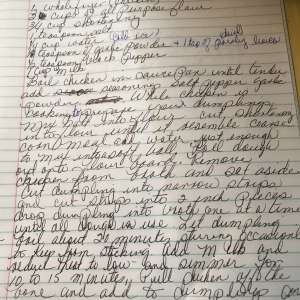 1 whole fryer
2 cups all purpose flour
3/4 cup shortening
1 teaspoon salt
3/4 cup water
1 teaspoon garlic powder
teaspoon black pepper
1 cup milk
Boil chicken in sauce pan until tender
add seasoning, salt pepper garlic
powder. While chicken is
Booking prepare your dumplings
Mix salt into flour cut shortening
into flour until it resemble coarse
corn meal add water just enough
to mix into soft ball. Roll dough
out onto flour board. Remove
chicken from broth and set aside
Cut dumpling into narrow strips
and cut strips into 2 inch pieces
drop dumpling into broth one at a time
until all dough in use. Let dumpling
boil about 20 minutes stirring occasionally
to keep from sticking add milk and
reduce heat to low and simmer for
10 to 15 minutes. Pull chicken off the
bone and add to dumplings